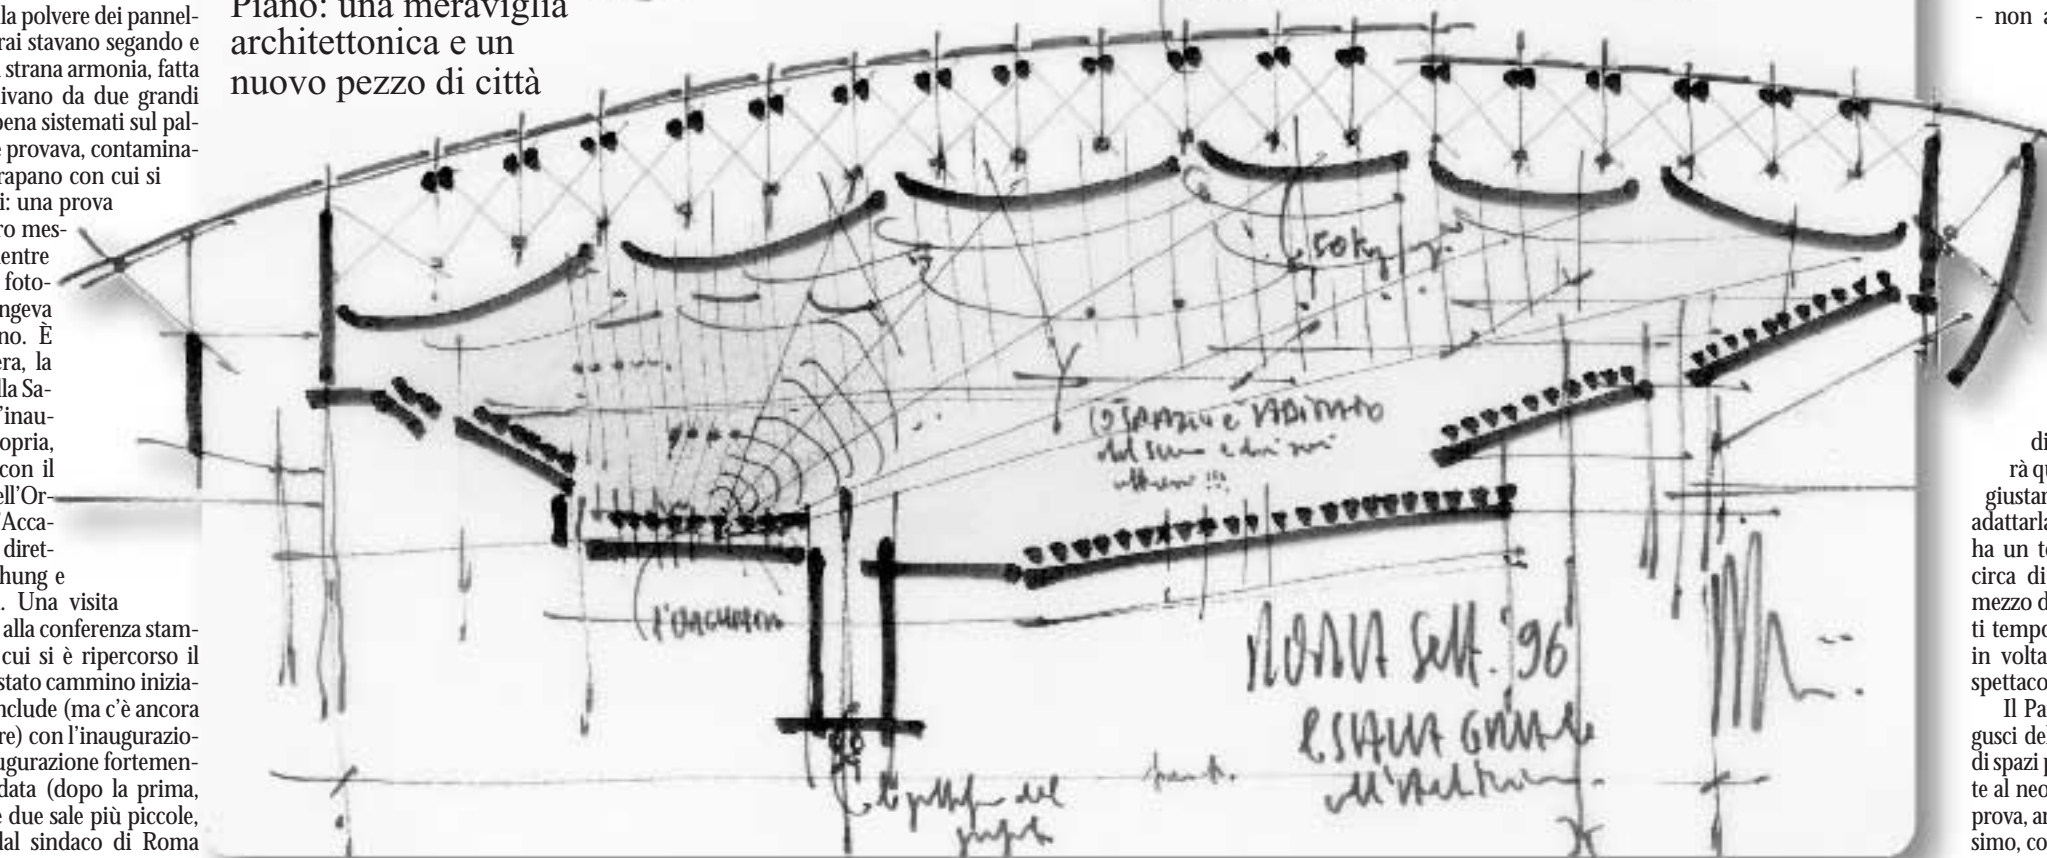 la polvere dei pannel-
rai stavano segando e
strana armonia, fatta
ivano da due grandi
pena sistemati sul pal-
e provava, contamina-
rapano con cui si
i: una prova
ro mes-
entre
foto-
ngeva
no. È
era, la
lla Sa-
'inau-
opria,
con il
ell'Or-
'Acca-
diret-
hung e
. Una visita
alla conferenza stam-
cui si è ripercorso il
stato cammino inizia-
nclude (ma c'è ancora
re) con l'inaugurazio-
ugurazione fortemen-
data (dopo la prima,
e due sale più piccole,
dal sindaco di Roma
Piano: una meraviglia
architettonica e un
nuovo pezzo di città
50 kg
lo spazio è
l'orchestra
ROMA Sett. '96
- non a
di
rà qu
giustan
adattarla
ha un te
circa di
mezzo d
ti tempo
in volta
spettaco
Il Pa
gusci del
di spazi p
te al neo
prova, an
simo, co